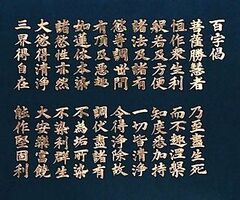 百字偈
菩薩勝慧者　乃至盡生死
恒作衆生利　而不趣涅槃
般若及方便　智度悉加持
諸法及諸有　一切皆清淨
慾等調世間　令得淨除故
有頂及惡趣　調伏盡諸有
如蓮体本染　不為垢所染
諸慾性亦然　不染利群生
大慾得清淨　大安樂富饒
三界得自在　能作堅固利